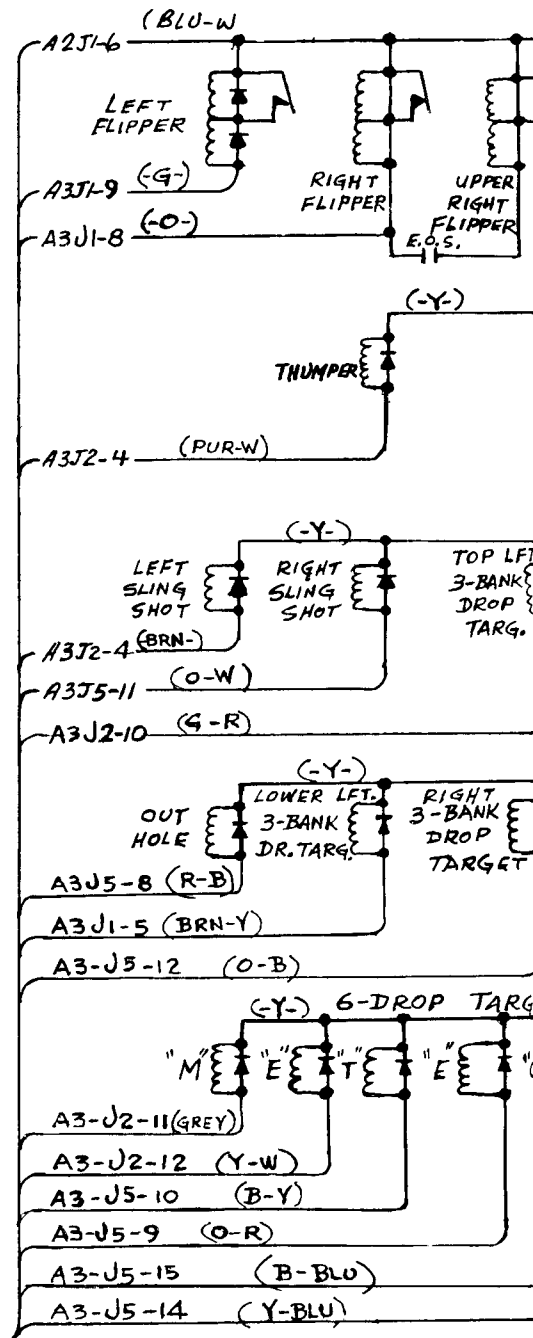 A2J1-6 (BLU-W
LEFT
FLIPPER
A3J1-9 (-G-)
RIGHT
FLIPPER
UPPER
RIGHT
FLIPPER
A3J1-8 (-O-)
E.O.S.
(-Y-)
THUMPER
A3J2-4 (PUR-W)
(-Y-)
LEFT
SLING
SHOT
RIGHT
SLING
SHOT
TOP LFT
3-BANK
DROP
TARG.
A3J2-4 (BRN-)
A3J5-11 (O-W)
A3J2-10 (G-R)
(-Y-)
OUT
HOLE
LOWER LFT.
3-BANK
DR.TARG.
RIGHT
3-BANK
DROP
TARGET
A3J5-8 (R-B)
A3J1-5 (BRN-Y)
A3-J5-12 (O-B)
(-Y-) 6-DROP TARG
"M" "E" "T" "E" "
A3-J2-11 (GREY)
A3-J2-12 (Y-W)
A3-J5-10 (B-Y)
A3-J5-9 (O-R)
A3-J5-15 (B-BLU)
A3-J5-14 (Y-BLU)